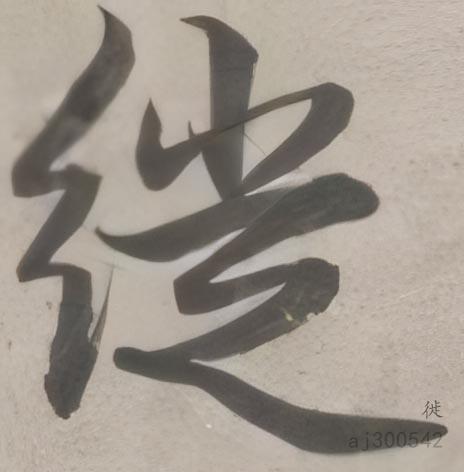 徙
徙
aj300542